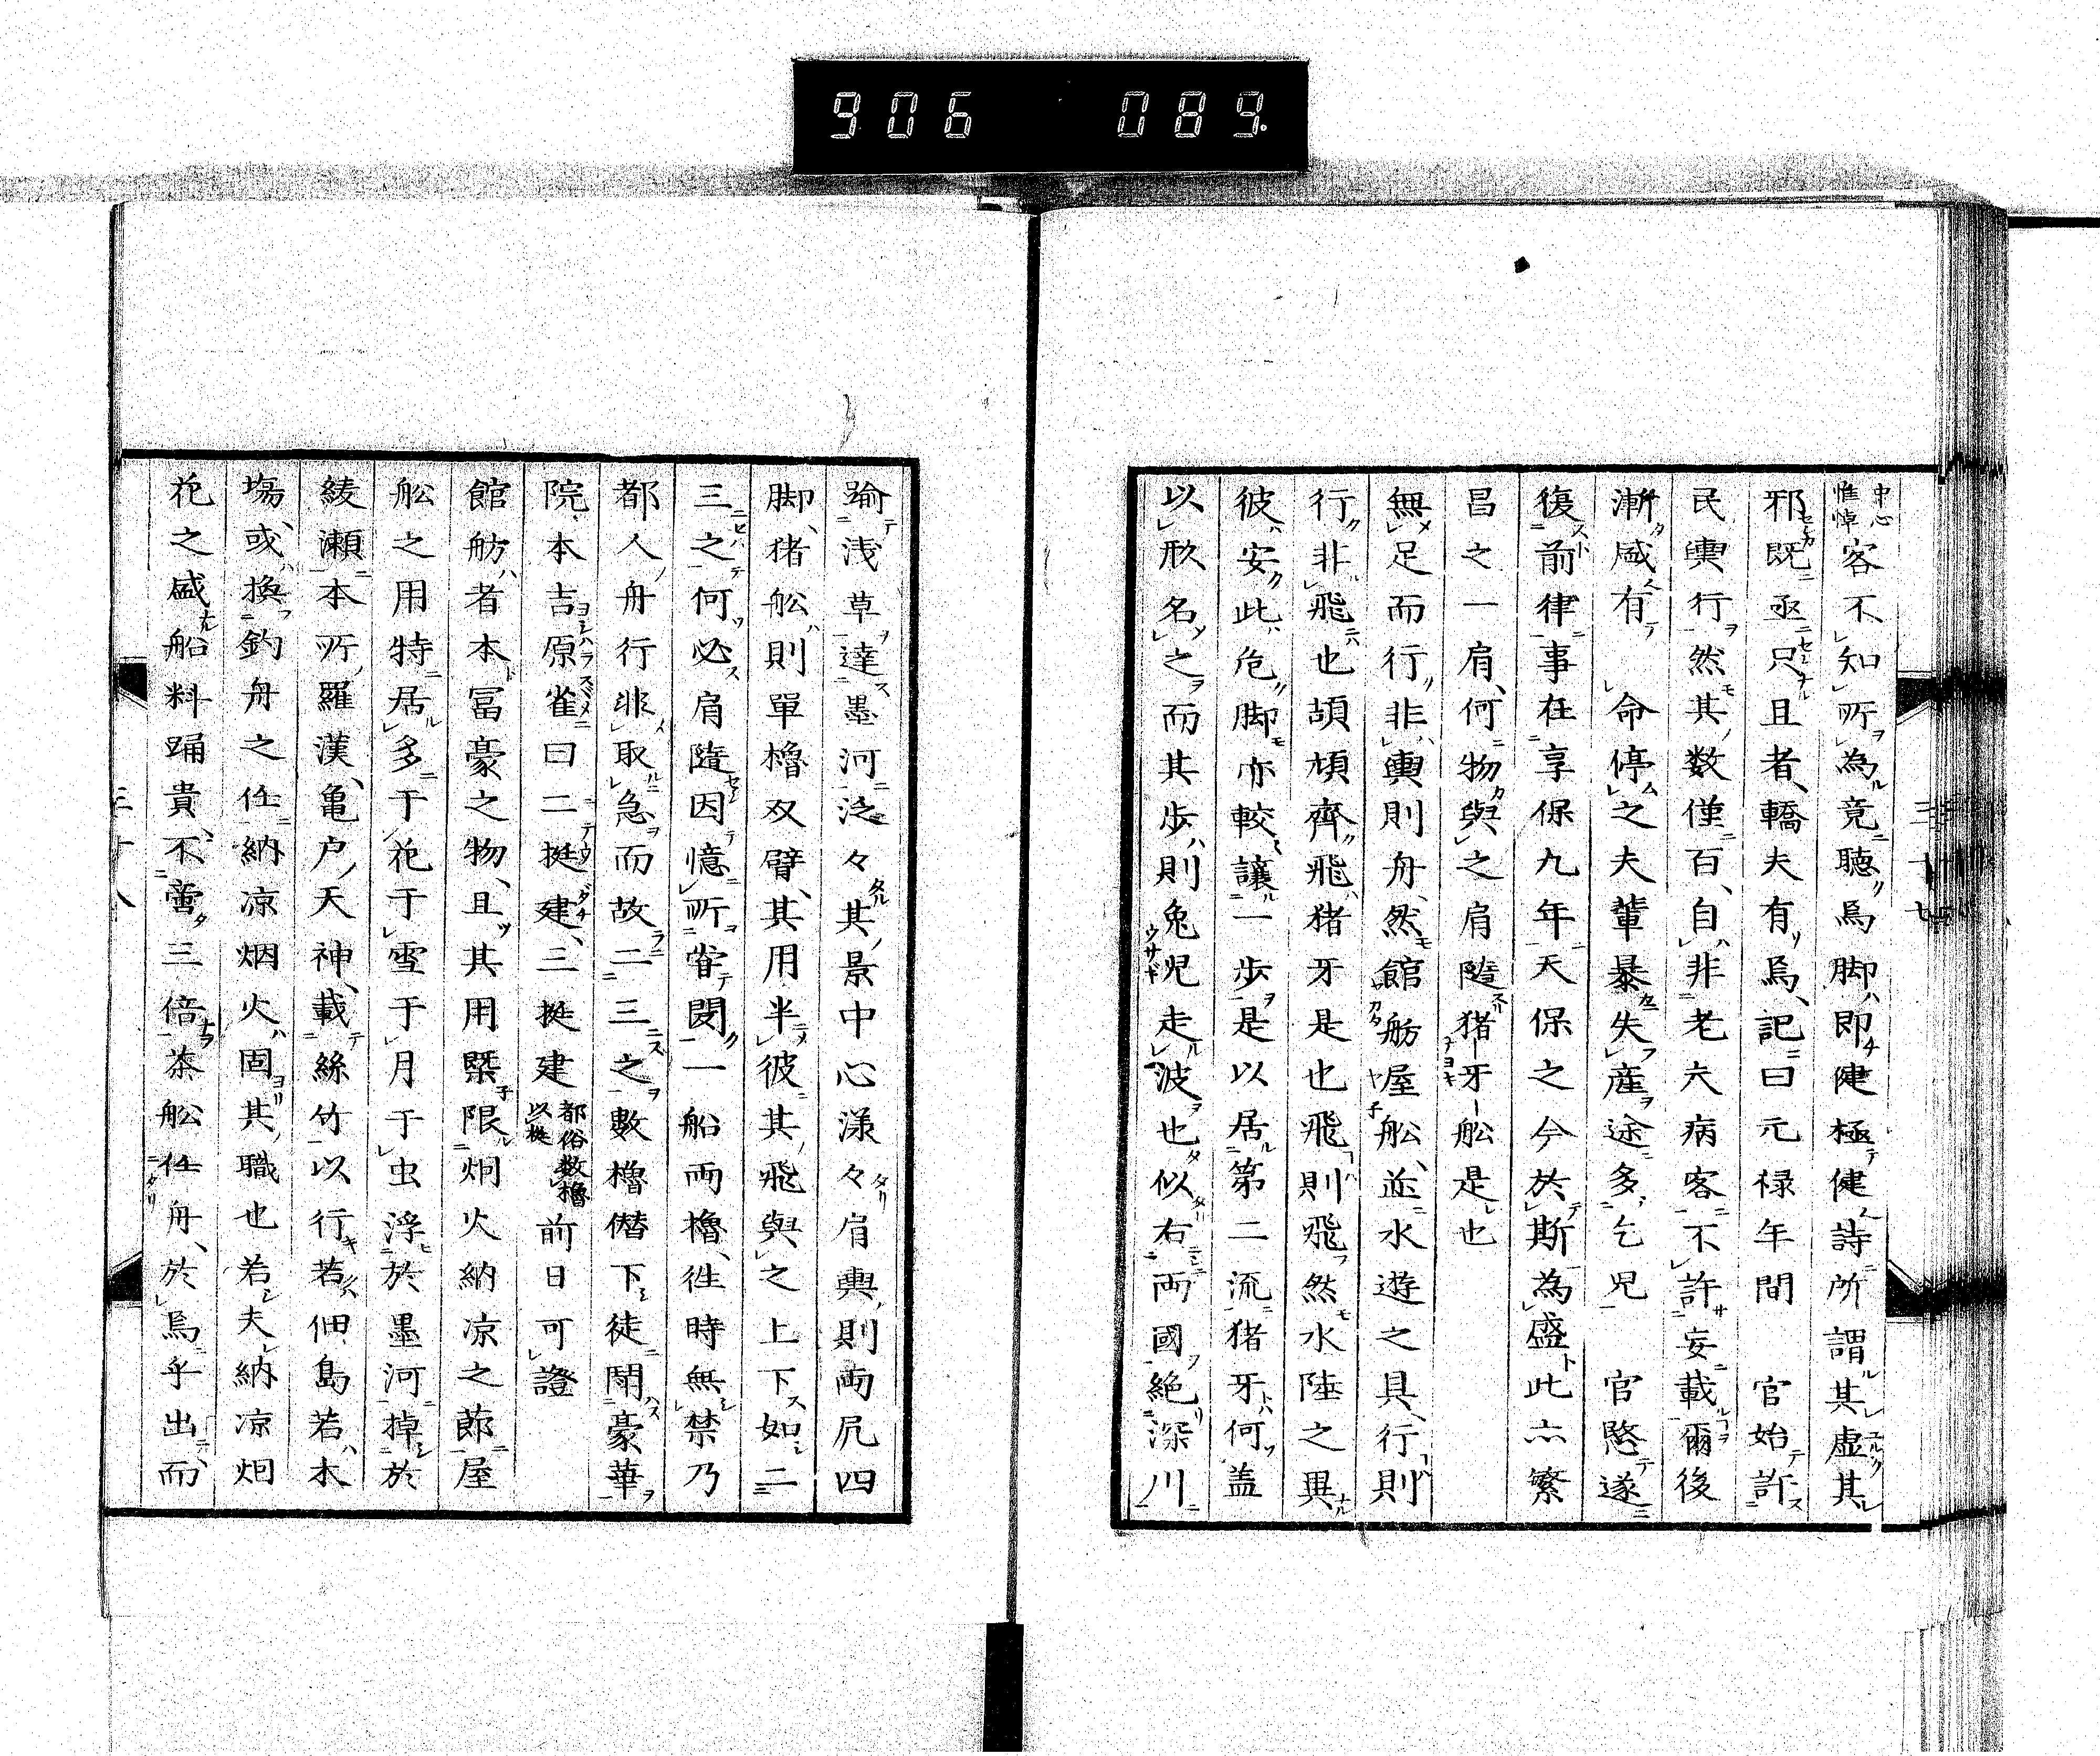 906 089.
中心惟悼客不知所為竟聽烏脚即健極健詩所謂其虛其
邪既亟只且者轎夫有焉記曰元禄年間 官始許
民輿行然其数僅百自非老夫病客不許妄載爾後
漸感有 命停之夫輩暴失産途多乞児 官愍遂
復前律事在享保九年天保之今於斯為盛此亦繁
昌之一肩何物與之肩隨猪牙舩是也
無足而行非輿則舟然館舫屋舩並水遊之具行則
行非飛也頡頏齊飛猪牙是也飛則飛然水陸之異
彼安此危脚亦較讓一歩是以居第二流猪牙何盖
以形名之而其歩則兔児走波也似右両國絶深川
三十七
踰浅草達墨河泛々其景中心漾々肩輿則両尻四
脚猪舩則單櫓双臂其用半彼其飛與之上下如二
三之何必肩隨因憶所甞閲一船両櫓徃時無禁乃
都人舟行非取急而故二三之數櫓僭下徒鬪豪華
院本吉原雀曰二挺建三挺建都俗数櫓以挺前日可證
館舫者本冨豪之物且其用槩限炯火納凉之節屋
舩之用特居多于花于雪于月于虫浮於墨河棹於
綾瀬本所羅漢亀户天神載絲竹以行若佃島若木
塲或換釣舟之任納凉烟火固其職也若夫納凉烟
花之盛船料踊貴不啻三倍茶舩任舟於焉乎出而
三十八